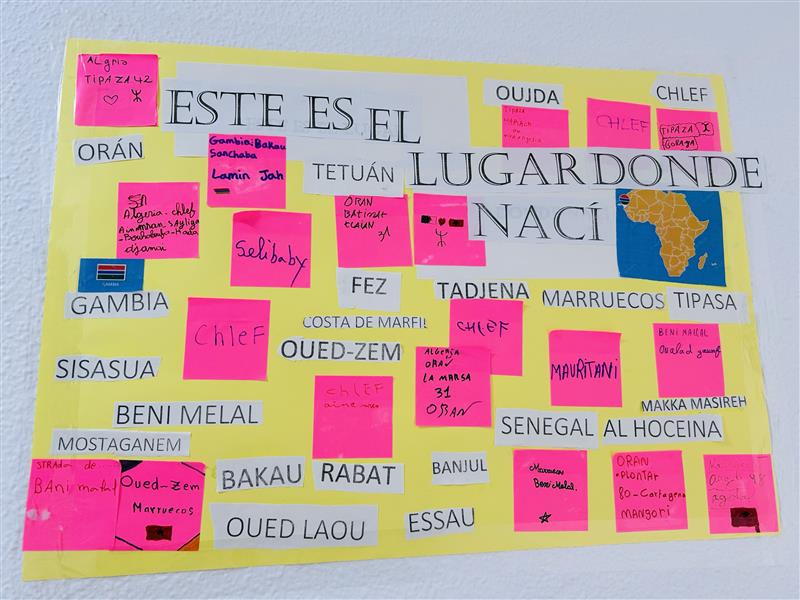 ALgria
TIPAZA 42
ESTE ES EL
LUGAR DONDE
NACÍ
OUJDA
CHLEF
CHLEF
TIPAZA
ORÁN
Gambia: Bakau
Sanchaba
Lamin Jah
TETUÁN
Algeria - chlef
ORAN
Selibaby
GAMBIA
GAMBIA
FEZ
TADJENA
MARRUECOS
TIPASA
ChleF
COSTA DE MARFIL
CHLEF
OUED-ZEM
SISASUA
ALGERIA
ORAN
LA MARSA
31
MAURITANI
BENI MALAL
chleF
BENI MELAL
MAKKA MASIREH
SENEGAL
AL HOCEINA
MOSTAGANEM
STRADA de
BANi malal
Oued-Zem
Marruecos
BAKAU
RABAT
BANJUL
Marruecos
Beni Melal.
ORAN
80-Cartagena
MANGORI
OUED LAOU
ESSAU